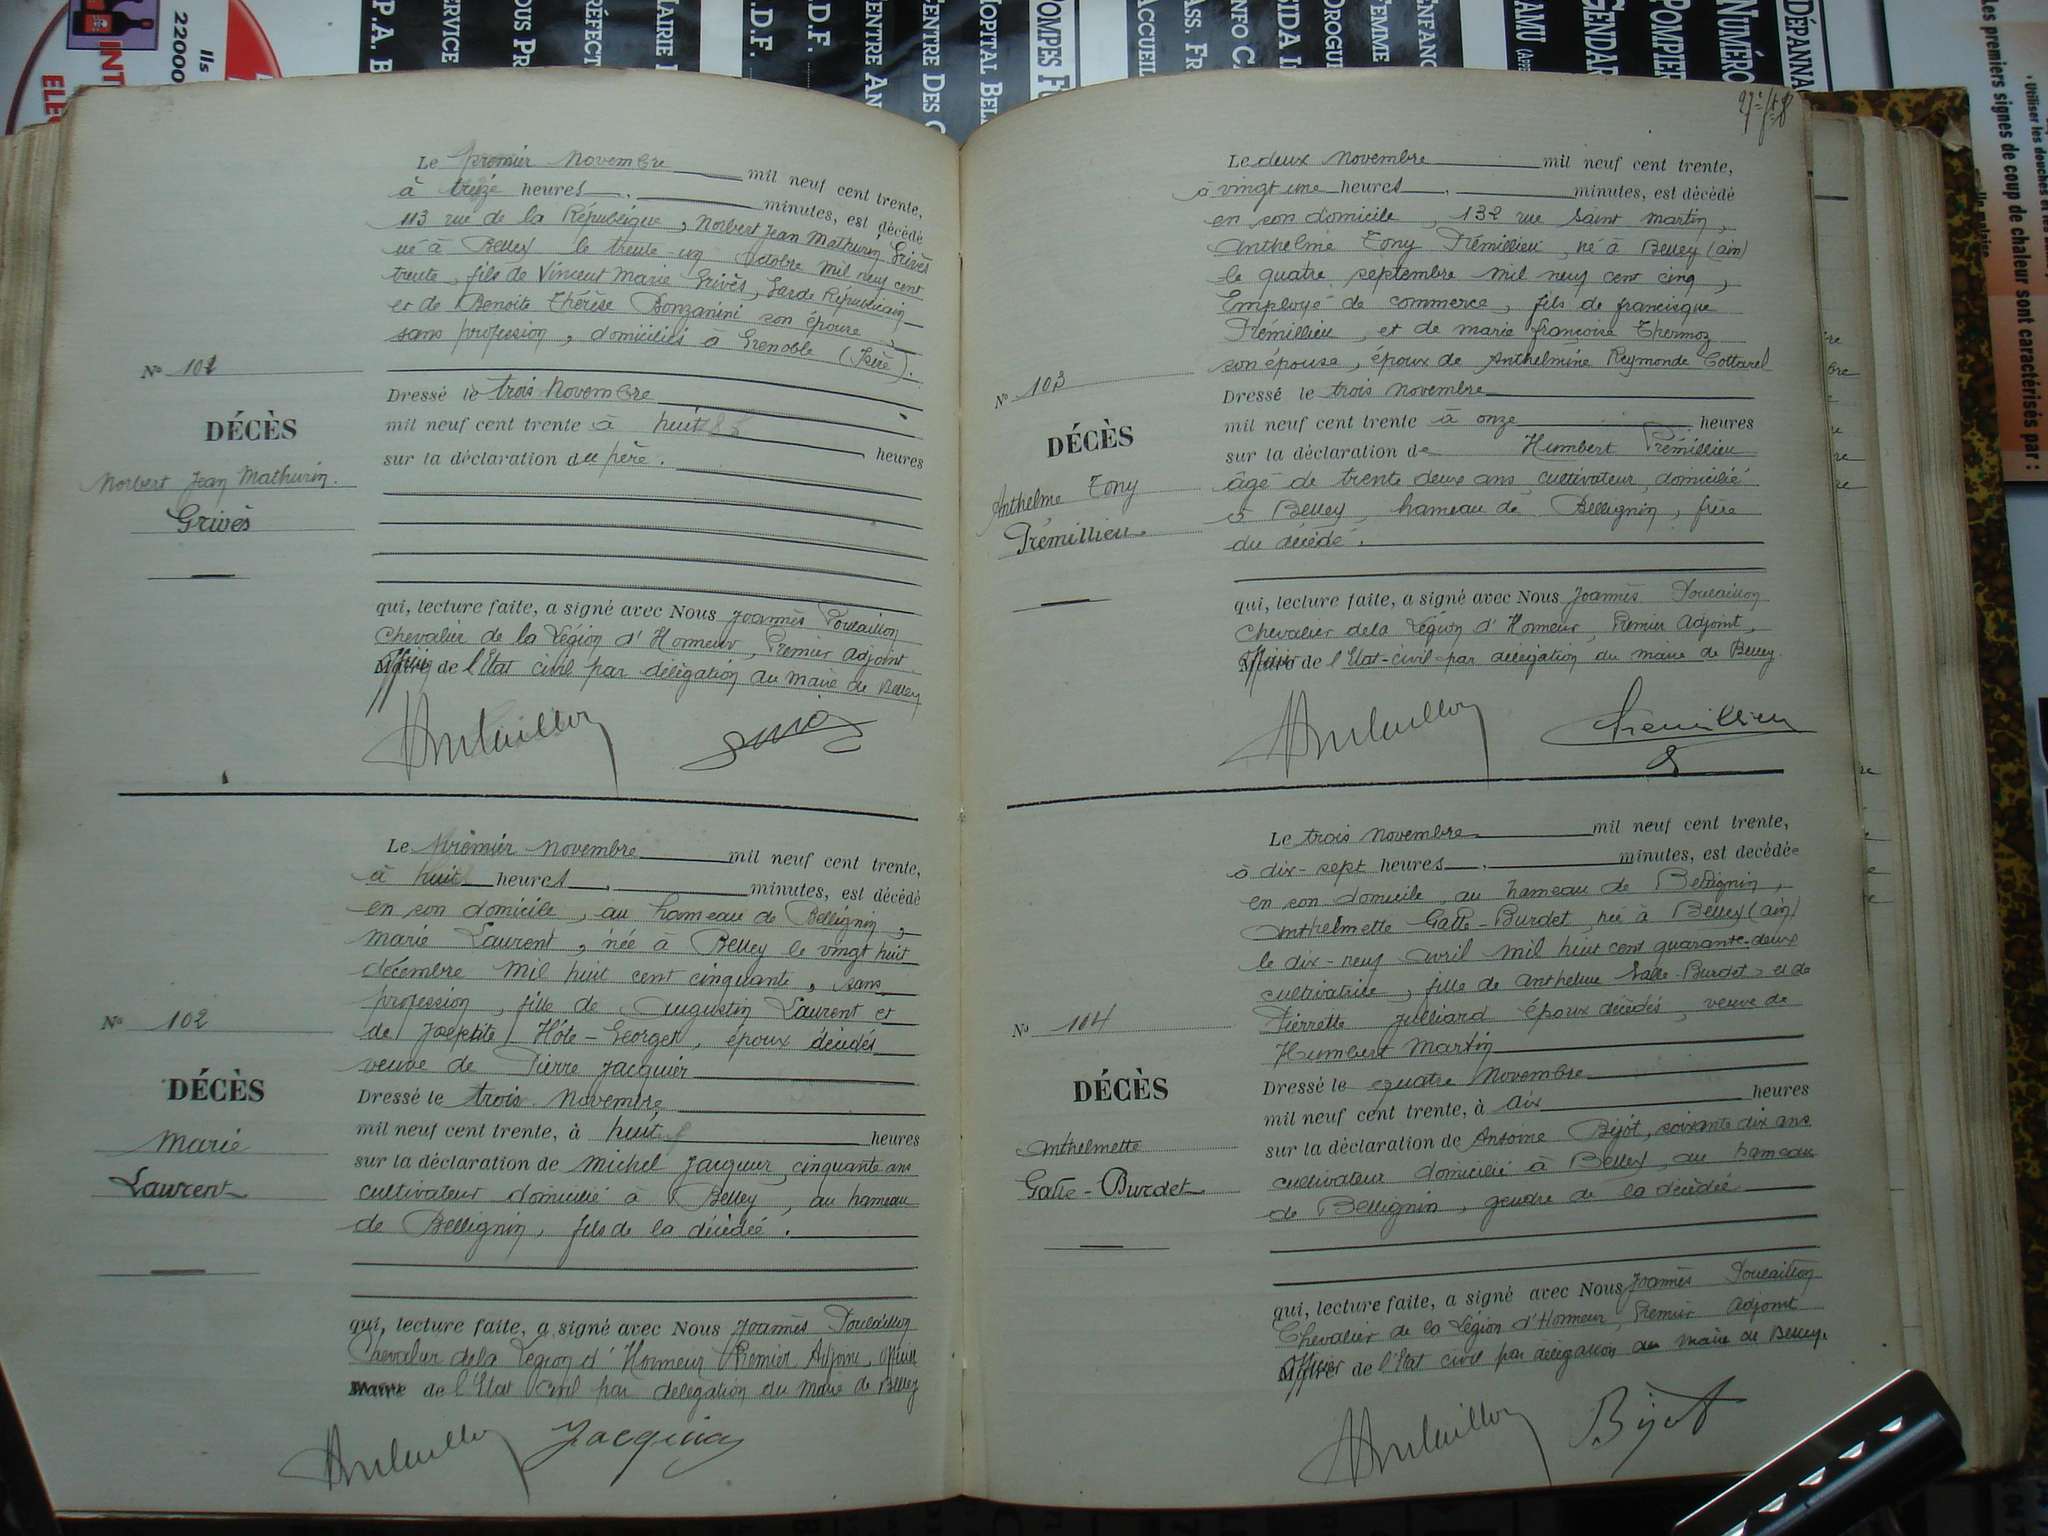 Le premier novembre mil neuf cent trente,
à treize heures minutes, est décédé
113 rue de la République, Norbert Jean Mathurin Grivès
né à Belley le trente-un octobre mil neuf cent
trente, fils de Vincent Marie Grivès, Garde Républicain
et de Benoite Thérèse Bonzanini son épouse,
sans profession, domiciliés à Grenoble (Isère).
N° 101
DÉCÈS
Norbert Jean Mathurin.
Grivès
Dressé le trois Novembre
mil neuf cent trente à huit heures
sur la déclaration du père.
qui, lecture faite, a signé avec Nous Joannès Poulaillon
Chevalier de la Légion d'Honneur, Premier adjoint
officier de l'Etat civil par délégation du maire de Belley
Le premier novembre mil neuf cent trente,
à huit heures minutes, est décédé
en son domicile, au hameau de Bellignin,
marie Laurent, née à Belley le vingt huit
décembre mil huit cent cinquante, sans
profession, fille de Augustin Laurent et
de Josephte Hôte-Georget, époux décédés
veuve de Pierre Jacquier
N° 102
DÉCÈS
Marie
Laurent
Dressé le trois Novembre
mil neuf cent trente, à huit heures
sur la déclaration de Michel Jacquier, cinquante ans
cultivateur domicilié à Belley, au hameau
de Bellignin, fils de la décédée.
qui, lecture faite, a signé avec Nous Joannès Poulaillon
Chevalier de la Légion d'Honneur Premier Adjoint, officier
Maire de l'Etat civil par délégation du Maire de Belley
Jacquier
Le deux novembre mil neuf cent trente,
à vingt une heures minutes, est décédé
en son domicile, 132 rue Saint martin,
Anthelme Tony Prémillieu, né à Belley (ain)
le quatre septembre mil neuf cent cinq,
Employé de commerce, fils de francisque
Prémillieu, et de marie françoise Thermoz
son épouse, époux de Anthelmine Reymonde Cottarel
N° 103
DÉCÈS
Anthelme Tony
Prémillieu
Dressé le trois novembre
mil neuf cent trente à onze heures
sur la déclaration de Humbert Prémillieu
âgé de trente deux ans, cultivateur, domicilié
à Belley, hameau de Bellignin, frère
du décédé.
qui, lecture faite, a signé avec Nous Joannès Poulaillon
Chevalier de la Légion d'Honneur, Premier Adjoint,
officier de l'Etat-civil par délégation du maire de Belley.
Prémillieu
Le trois novembre mil neuf cent trente,
à dix-sept heures minutes, est decédée
en son domicile, au hameau de Bellignin,
Anthelmette Galle-Burdet, née à Belley (ain)
le dix-neuf avril mil huit cent quarante-deux
cultivatrice, fille de Anthelme Galle-Burdet, et de
Pierrette Julliard époux décédés, veuve de
Humbert Martin
N° 104
DÉCÈS
Anthelmette
Galle-Burdet
Dressé le quatre Novembre
mil neuf cent trente, à dix heures
sur la déclaration de Antoine Bijot, soixante dix ans
cultivateur domicilié à Belley, au hameau
de Bellignin, gendre de la décédée
qui, lecture faite, a signé avec Nous Joannès Poulaillon
Chevalier de la Légion d'Honneur, Premier Adjoint
officier de l'Etat civil par délégation du maire de Belley.
Bijot